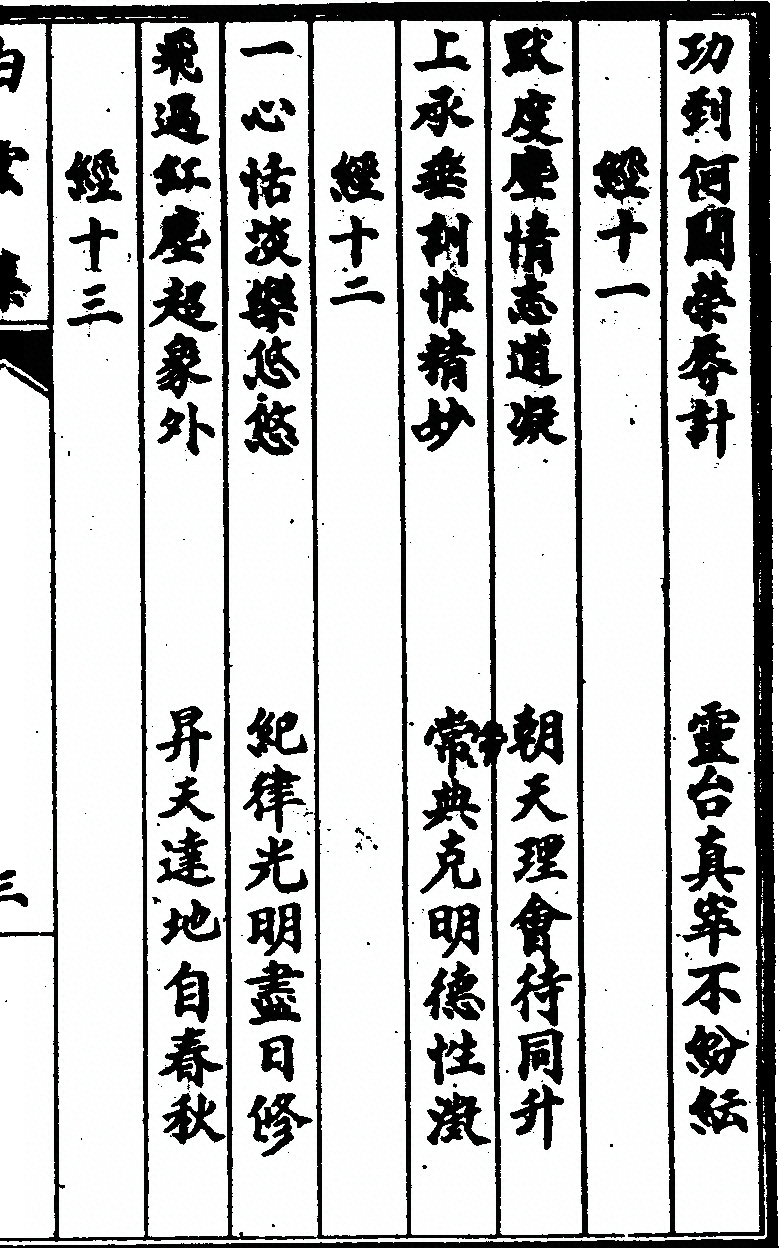 功到何關榮辱計　靈台真宰不紛紜
經十一
默度塵情志道凝　朝天理會待同升
上承垂訓惟精妙　常典克明德性澂
經十二
一心恬淡樂悠悠　紀律光明盡日修
飛過紅塵超象外　昇天達地自春秋
經十三
白雲集　三